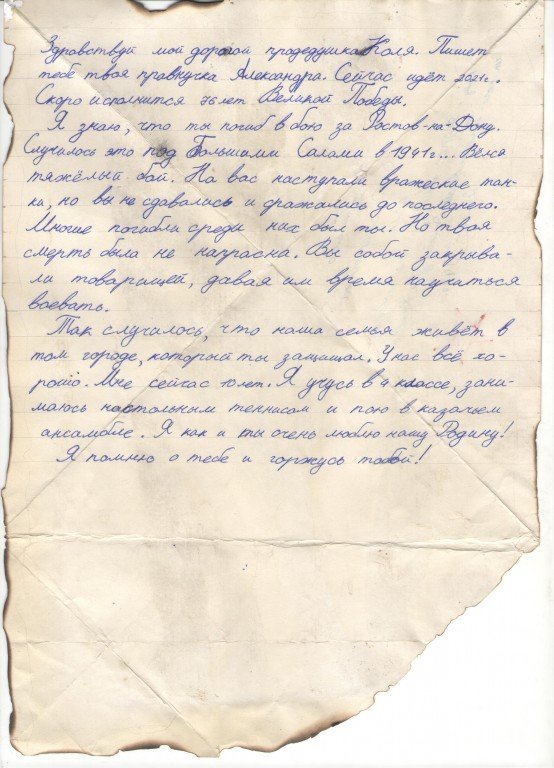 Здравствуй мой дорогой продедушка Коля Пишет
тебе твоя правнучка Александра. Сейчас идёт 2021г..
Скоро исполнится 76 лет Великой Победы.
Я знаю, что ты погиб в бою за Ростов-на-Дону.
Случилось это под Большими Салами в 1941г... Вёлся
тяжёлый бой. На вас наступали вражеские тан-
ки, но вы не сдавались и дражались до последнего.
Многие погибли среди них был ты. Но твоя
смерть была не напрасна. Вы собой закрыва-
ли товарищей, давая им время научиться
воевать.
Так случилось, что наша семья живёт в
том городе, который ты защищал. У нас всё хо-
рошо. Мне сейчас 10 лет. Я учусь в 4 классе, зани-
маюсь настольным теннисом и пою в казачьем
ансамбле. Я как и ты очень люблю нашу Родину!
Я помню о тебе и горжусь тобой!